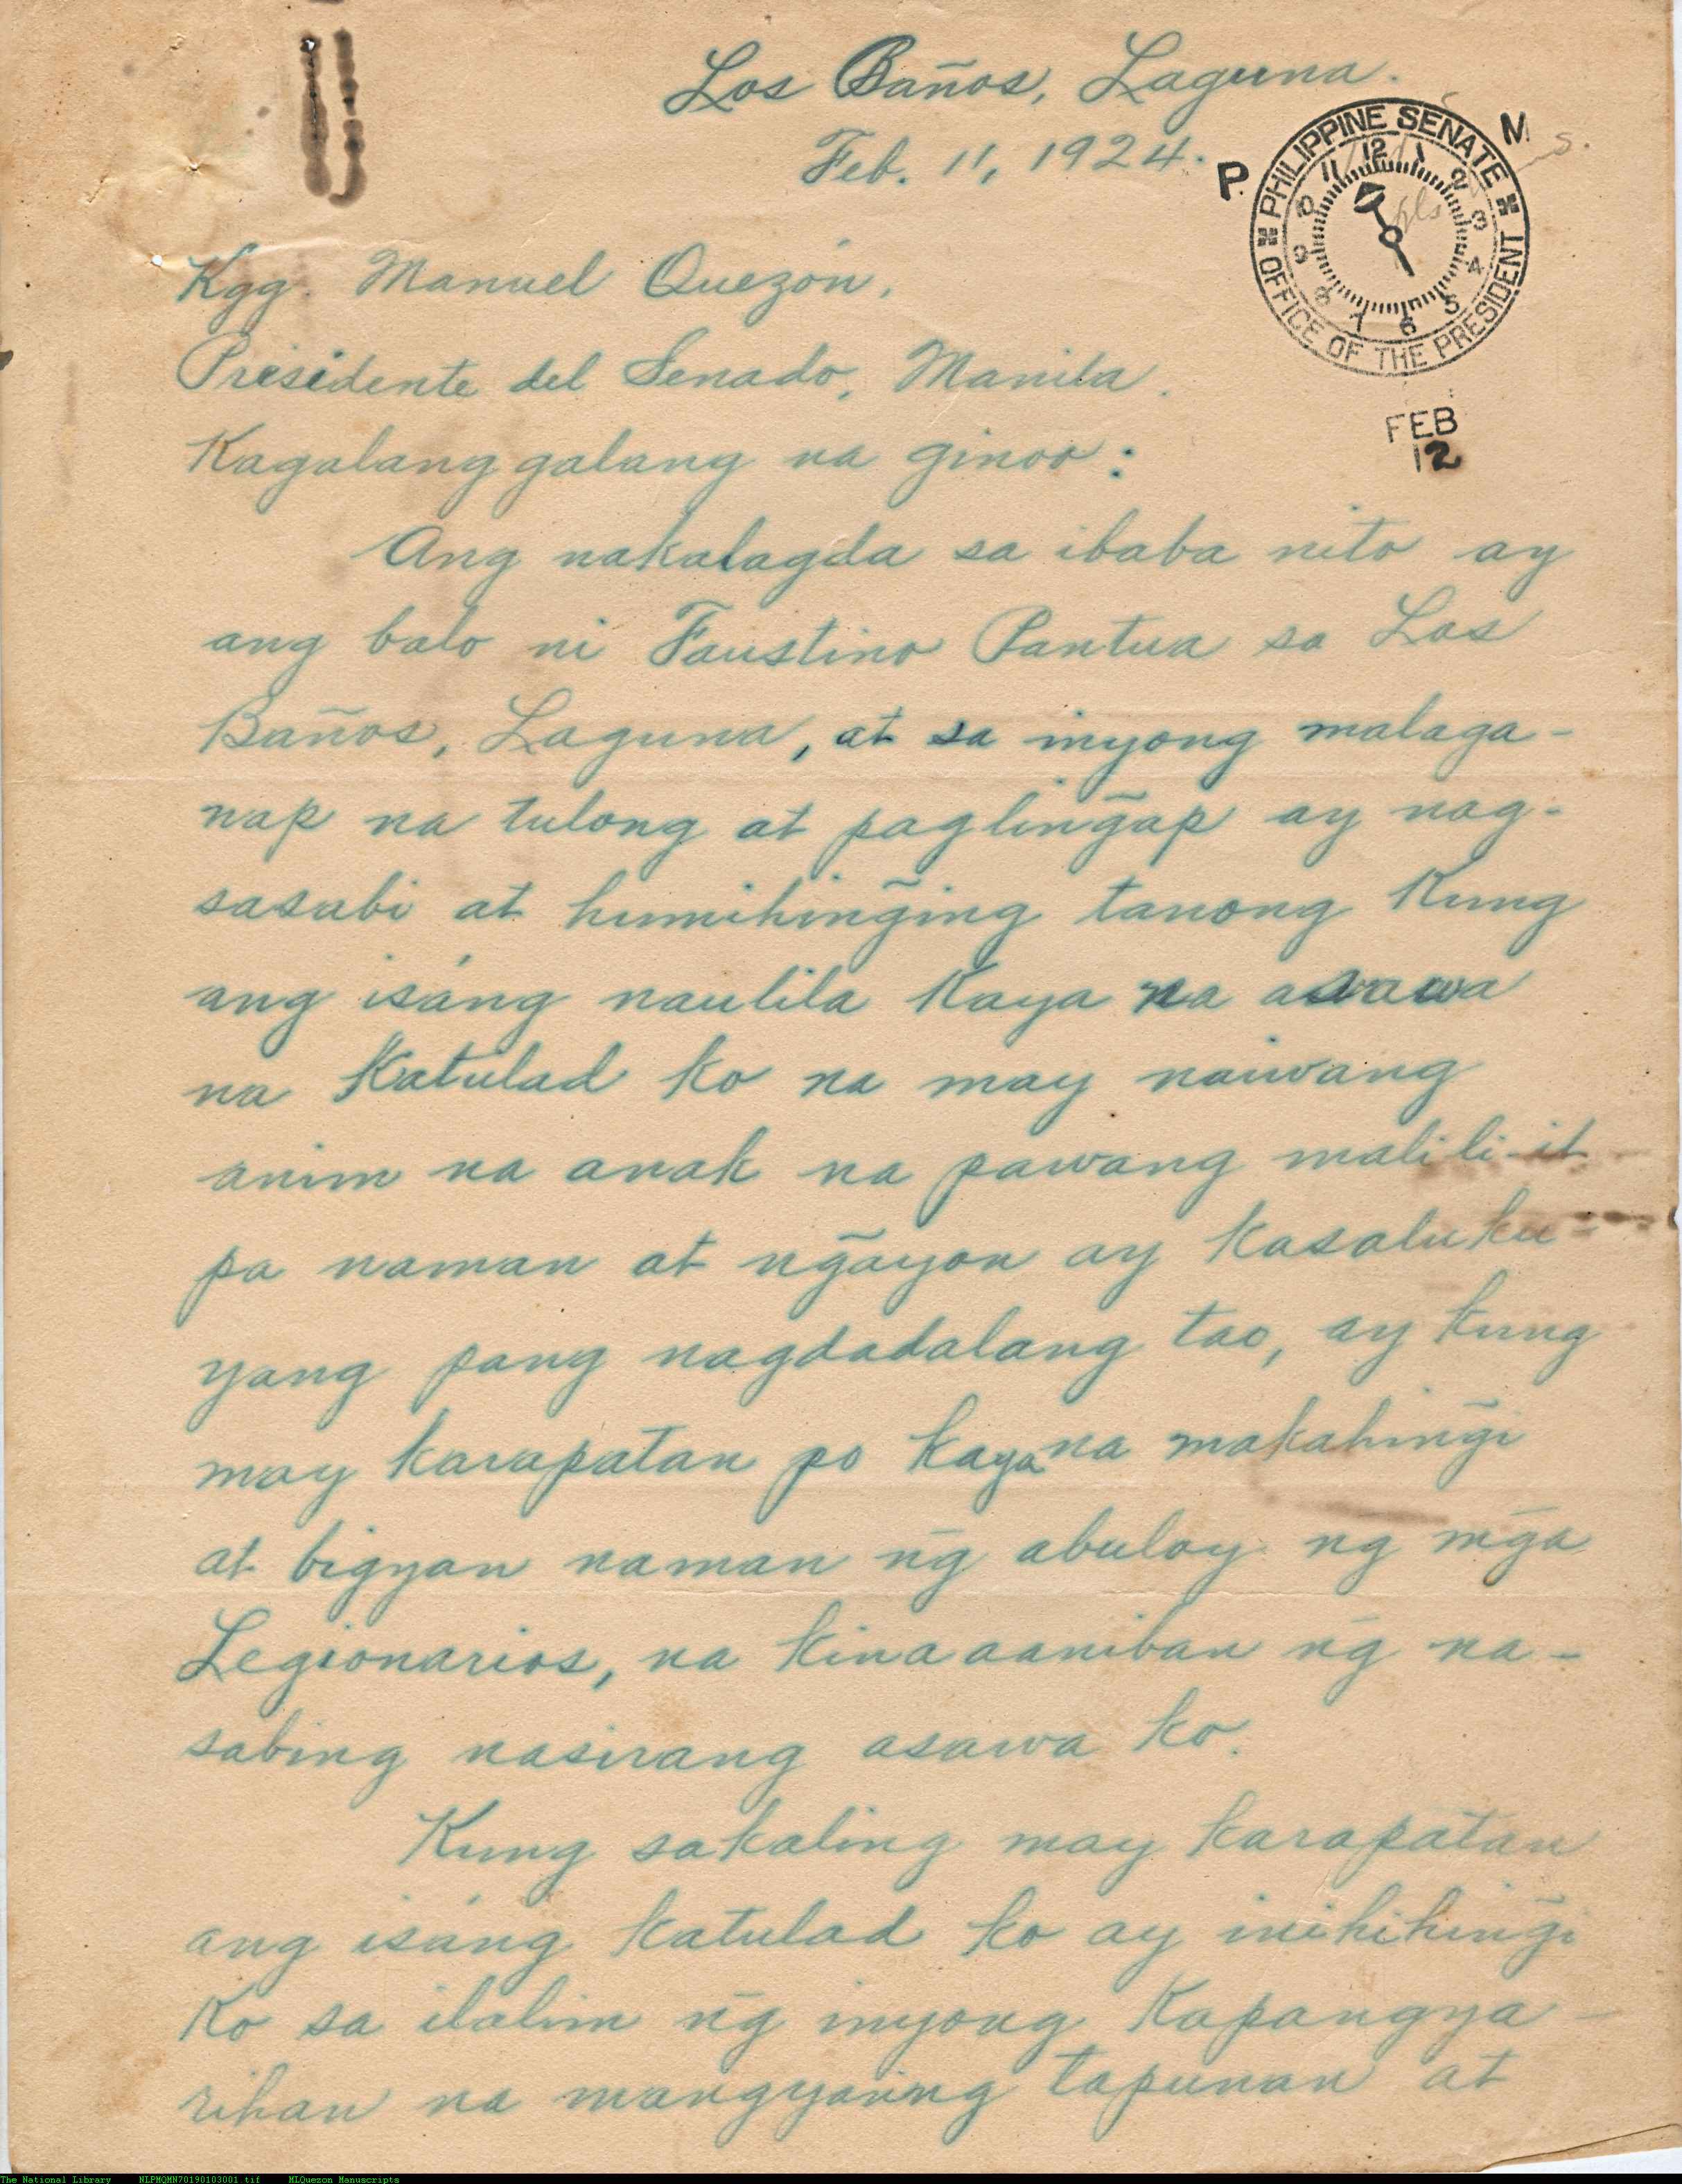 Los Baños, Laguna.
Feb. 11, 1924.
P. M
PHILIPPINE SENATE
OFFICE OF THE PRESIDENT
12 1 2 3 4 5 6 7 8 9 10 11
FEB
12
Kgg. Manuel Quezón,
Presidente del Senado, Manila.
Kagalanggalang na ginoo:
Ang nakalagda sa ibaba nito ay
ang balo ni Faustino Pantua sa Los
Baños, Laguna, at sa inyong malaga-
nap na tulong at paglin͠gap ay nag-
sasabi at humihin͠ging tanong kung
ang isáng naulila kaya na asawa
na katulad ko na may naiwang
anim na anak na pawang malili-it
pa naman at n͠gayon ay kasaluku-
yang pang nagdadalang tao, ay kung
may karapatan po kaya na makahin͠gi
at bigyan naman n͠g abuloy ng m͠ga
Legionarios, na kinaaaniban n͠g na-
sabing nasirang asawa ko.
Kung sakaling may karapatan
ang isáng katulad ko ay inihihin͠gi
ko sa ilalim n͠g inyong kapangya-
rihan na mangyaring tapunan at
The National Library NLPMQMN70190103001.tif MLQuezon Manuscripts